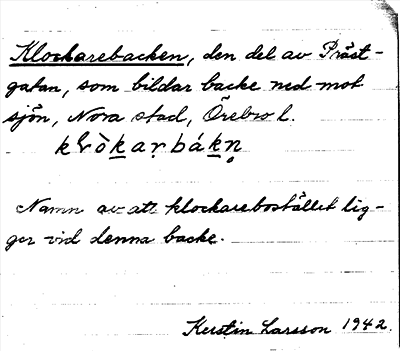 Klockarebacken, den del av Präst-
gatan, som bildar backe ned mot
sjön, Nora stad, Örebro l.
kɽòk̲arbák̲n̥
Namn av att klockarebostället lig-
ger vid denna backe.
Kerstin Larsson 1942.